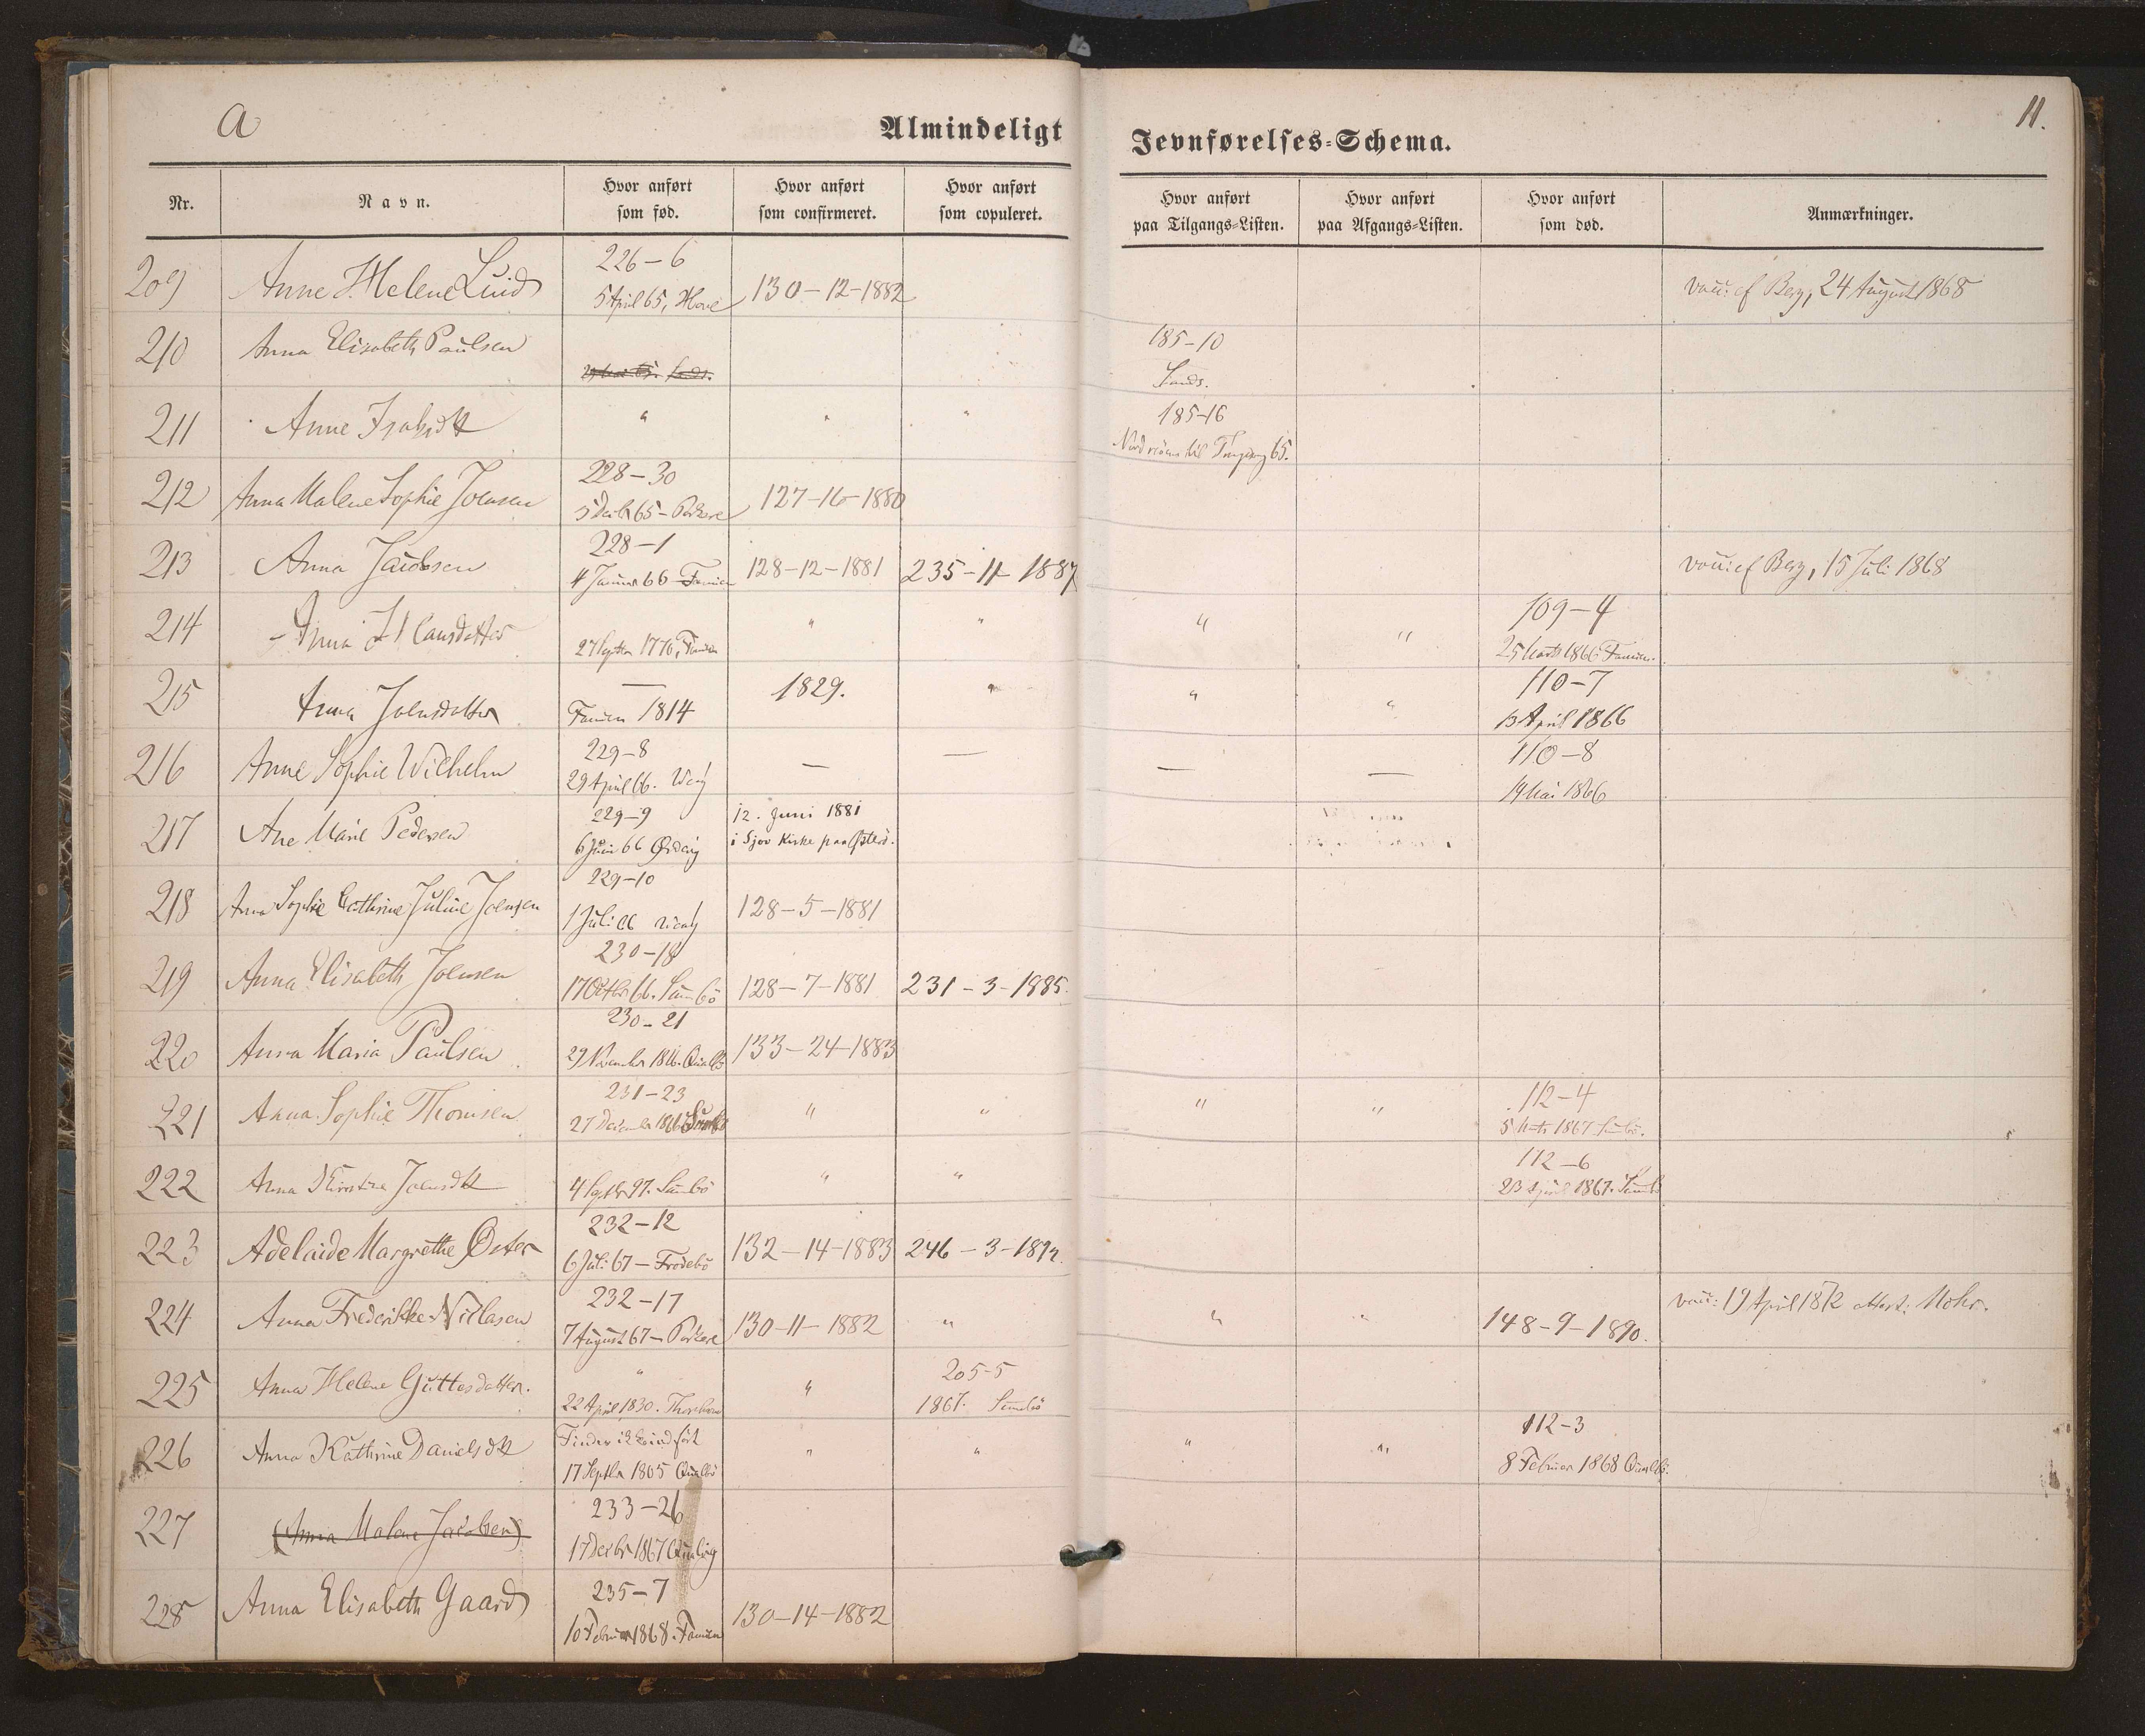 a
Almindeligt Jevnførelses-Schema.
11.
Nr.
Navn.
Hvor anført som fød.
Hvor anført som confirmeret.
Hvor anført som copuleret.
Hvor anført paa Tilgangs-Listen.
Hvor anført paa Afgangs-Listen.
Hvor anført som død.
Anmærkninger.
209 Anne Helene 226-6 130-12-1882
5 April 65, 24 August 1868
210 Anna Elisabeth Paulsen 185-10
211 Anne " " " 185-16
til 65.
212 Anna Malene Sophie Joensen 228-30 127-16-1880
65 - Porkere
213 Anna Jacobsen 228-1 128-12-1881 235-11-1887
4 Januar 66 Famien 15 Juli 1868
214 Anna Hansdatter " " " " 109-4
27 Septbr 1776, Famien 25 Marts 1866 Famien.
215 Anna Joensdatter — 1829. " " " 110-7
Famien 1814 13 April 1866
216 Anne Sophie Wilhelm 229-8 — — — — 110-8
29 April 66. 19 Mai 1866
217 Ane Marie Pedersen 229-9 12. Juni 1881
6 Juni 66 Ørdevig i Kirke paa Østerö.
218 Anna Sophie Cathrine Juline Joensen 229-10 128-5-1881
1 Juli 66
219 Anna Elisabeth Joensen 230-18 128-7-1881 231-3-1885.
17 Octbr 66. Sumbö
220 Anna Maria Paulsen 230-21 133-24-1883
29 November 1866. Qualbö
221 Anna Sophie Thomsen 231-23 " " " " 112-4
27 December 1866 Sumbö 5 Marts 1867 Sumbö.
222 Anna Joensdtt " " 112-6
4 Septbr 97. Sumbö 23 April 1867. Sumbö
223 Adelaide Margrethe Øster 232-12 132-14-1883 246-3-1892.
6 Juli 67 - Frodebö
224 Anna Frederikke Niclasen 232-17 130-11-1882 " " " 148-9-1890.
7 August 67 - Porkere 19 April 1872 Mohr.
225 Anna Helene Guttesdatter. " " 205-5
22 April 1830. 1867. Sumbö
226 Anna Kathrine Danielsdtt Findes ikke indført " " " " 112-3
17 Septbr 1805 Qualbö 8 Februar 1868 Qualbö.
227 (Anna Malene Jacobsen) 233-26
17 Decbr 1867
228 Anna Elisabeth Gaard 235-7 130-14-1882
10 Februar 1868. Famien